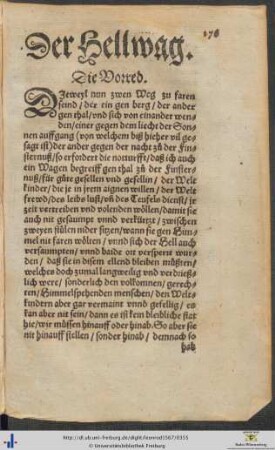 178
Der Hellwag.
Die Vorred.
DJeweyl nun zwen Weg zu faren
seind/ der ein gen berg/ der ander
gen thal/ vnd sich von einander wen-
den/ einer gegen dem liecht der Son-
nen auffgang (von welchem biß hieher vil ge-
sagt ist) der ander gegen der nacht zů der Fins-
sternuß/ so erfordert die notturfft/ daß ich auch
ein Wagen begreiff gen thal zů der Finster-
nuß/ für gůte gesellen vnd gesellin/ der Welt
kinder/ die je in jrem aignen willen/ der Welt
frewd/ des leibs lust/ vñ des Teufels dienst/ je
zeit vertreiben vnd volenden wöllen/ damit sie
auch nit gesaumpt vnnd verkürtzt/ zwischen
zweyen stülen nider sitzen/ wann sie gen Him-
mel nit faren wölten/ vnnd sich der Hell auch
versaumpten/ vnnd baide ort versperrt wur-
den/ daß sie in disem ellend bleiben müßten/
welches doch zumal langweilig vnd verdrieß-
lich were/ sonderlich den volkomnen/ gerech-
ten/ Himmelspehenden menschen/ den Welt-
kindern aber gar vermaint vnnd gefellig/ es
kan aber nit sein/ dann es ist kein bleibliche stat
hie/ wir müssen hinauff oder hinab. So aber sie
nit hinauff stellen/ sonder hinab/ demnach so
hab
http://dl.ub.uni-freiburg.de/diglit/
© Universitätsbibliothek Freiburg
Baden-Württemberg